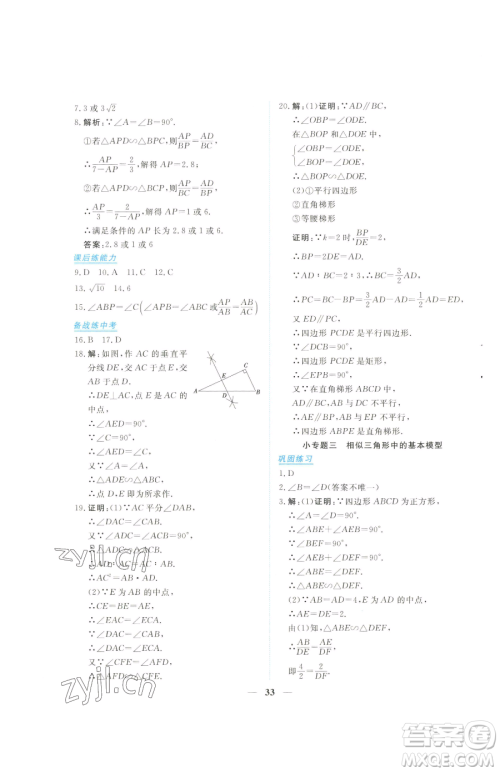 7. 3 或 3√2
8. 解析:∵∠A=∠B=90°.
①若△APD∽△BPC,则AP/BP=AD/BC.
∴AP/(7-AP)=2/3,解得 AP=2.8.
②若△APD∽△BCP,则AP/BC=AD/BP.
∴AP/3=2/(7-AP),解得 AP=1 或 6.
∴满足条件的 AP 长为 2.8 或 1 或 6.
答案:2.8 或 1 或 6
课后练能力
9. D 10. A 11. C 12. C
13. √10 14. 6
15. ∠ABP=∠C(∠APB=∠ABC 或AP/AB=AB/AC)
备战练中考
16. B 17. D
18. 解:如图,作 AC 的垂直平
分线 DE,交 AB 于点 E,交
AC 于点 D.
∴DE⊥AC,点 D 是 AC 的
中点.
∴∠AED=90°.
又∵∠C=90°.
∴∠AED=∠C.
又∵∠A=∠A.
∴△AED∽△ACB.
19. 证明:(1)∵AC 平分∠DAB.
∴∠DAC=∠CAB.
又∵∠ADC=∠ACB=90°.
∴△ADC∽△ACB.
∴AD∶AC=AC∶AB.
∴AC²=AB·AD.
(2)∵E 为 AB 的中点.
∴CE=BE=AE.
∴∠EAC=∠ECA.
∵∠DAC=∠CAB.
∴∠DAC=∠ECA.
又∵∠CFE=∠AFD.
∴△AFD∽△CFE.
20. 解:(1)证明:∵AD∥BC.
∴∠OBP=∠ODE.
在△BOP 和△DOE 中.
∠OBP=∠ODE.
∴△BOP≌△DOE.
(2)①平行四边形
②直角梯形
③等腰梯形
证明:∵BP/DE=2 时.
∴PC=BC-BP=
∴四边形 PCDE 是平行四边形.
∵∠DCB=90°.
∴四边形 PCDE 是矩形.
∴∠EPB=90°.
又∵在直角梯形 ABCD 中.
∴AD∥BC,AB 与 DC 不平行.
∴四边形 ABPE 是直角梯形.
小专题三 相似三角形中的基本模型
巩固练习
1. D
2. ∠B=∠D(答案不唯一)
3. 解:(1)证明:∵四边形 ABCD 为正方形.
∴∠A=∠D=90°.
∴∠ABE+∠AEB=90°.
又∵EF⊥EB.
∴∠AEB+∠DEF=90°.
∴∠ABE=∠DEF.
∴△ABE∽△DEF.
(2)∵AB=AD=4,E 为 AD 的中点.
∴AE=DE=2.
由(1)知,△ABE∽△DEF.
∴AB/DE=AE/DF.
即4/2=2/DF.
33
zyjl.cn
zyjl.cn
答案圈
MXQE.COM